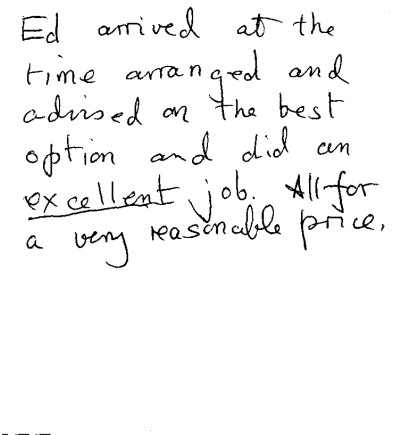 Ed arrived at the
time arranged and
advised on the best
option and did an
excellent job. All for
a very reasonable price.